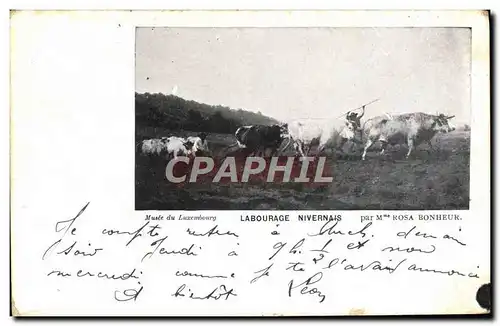 CPARAMA
Musée du Luxembourg LABOURAGE NIVERNAIS par Mme ROSA BONHEUR.
Je compte rentrer à demain
soir Jeudi à 9h. ½ et non
mercredi comme je te l'avais annoncé
A bientôt Léon